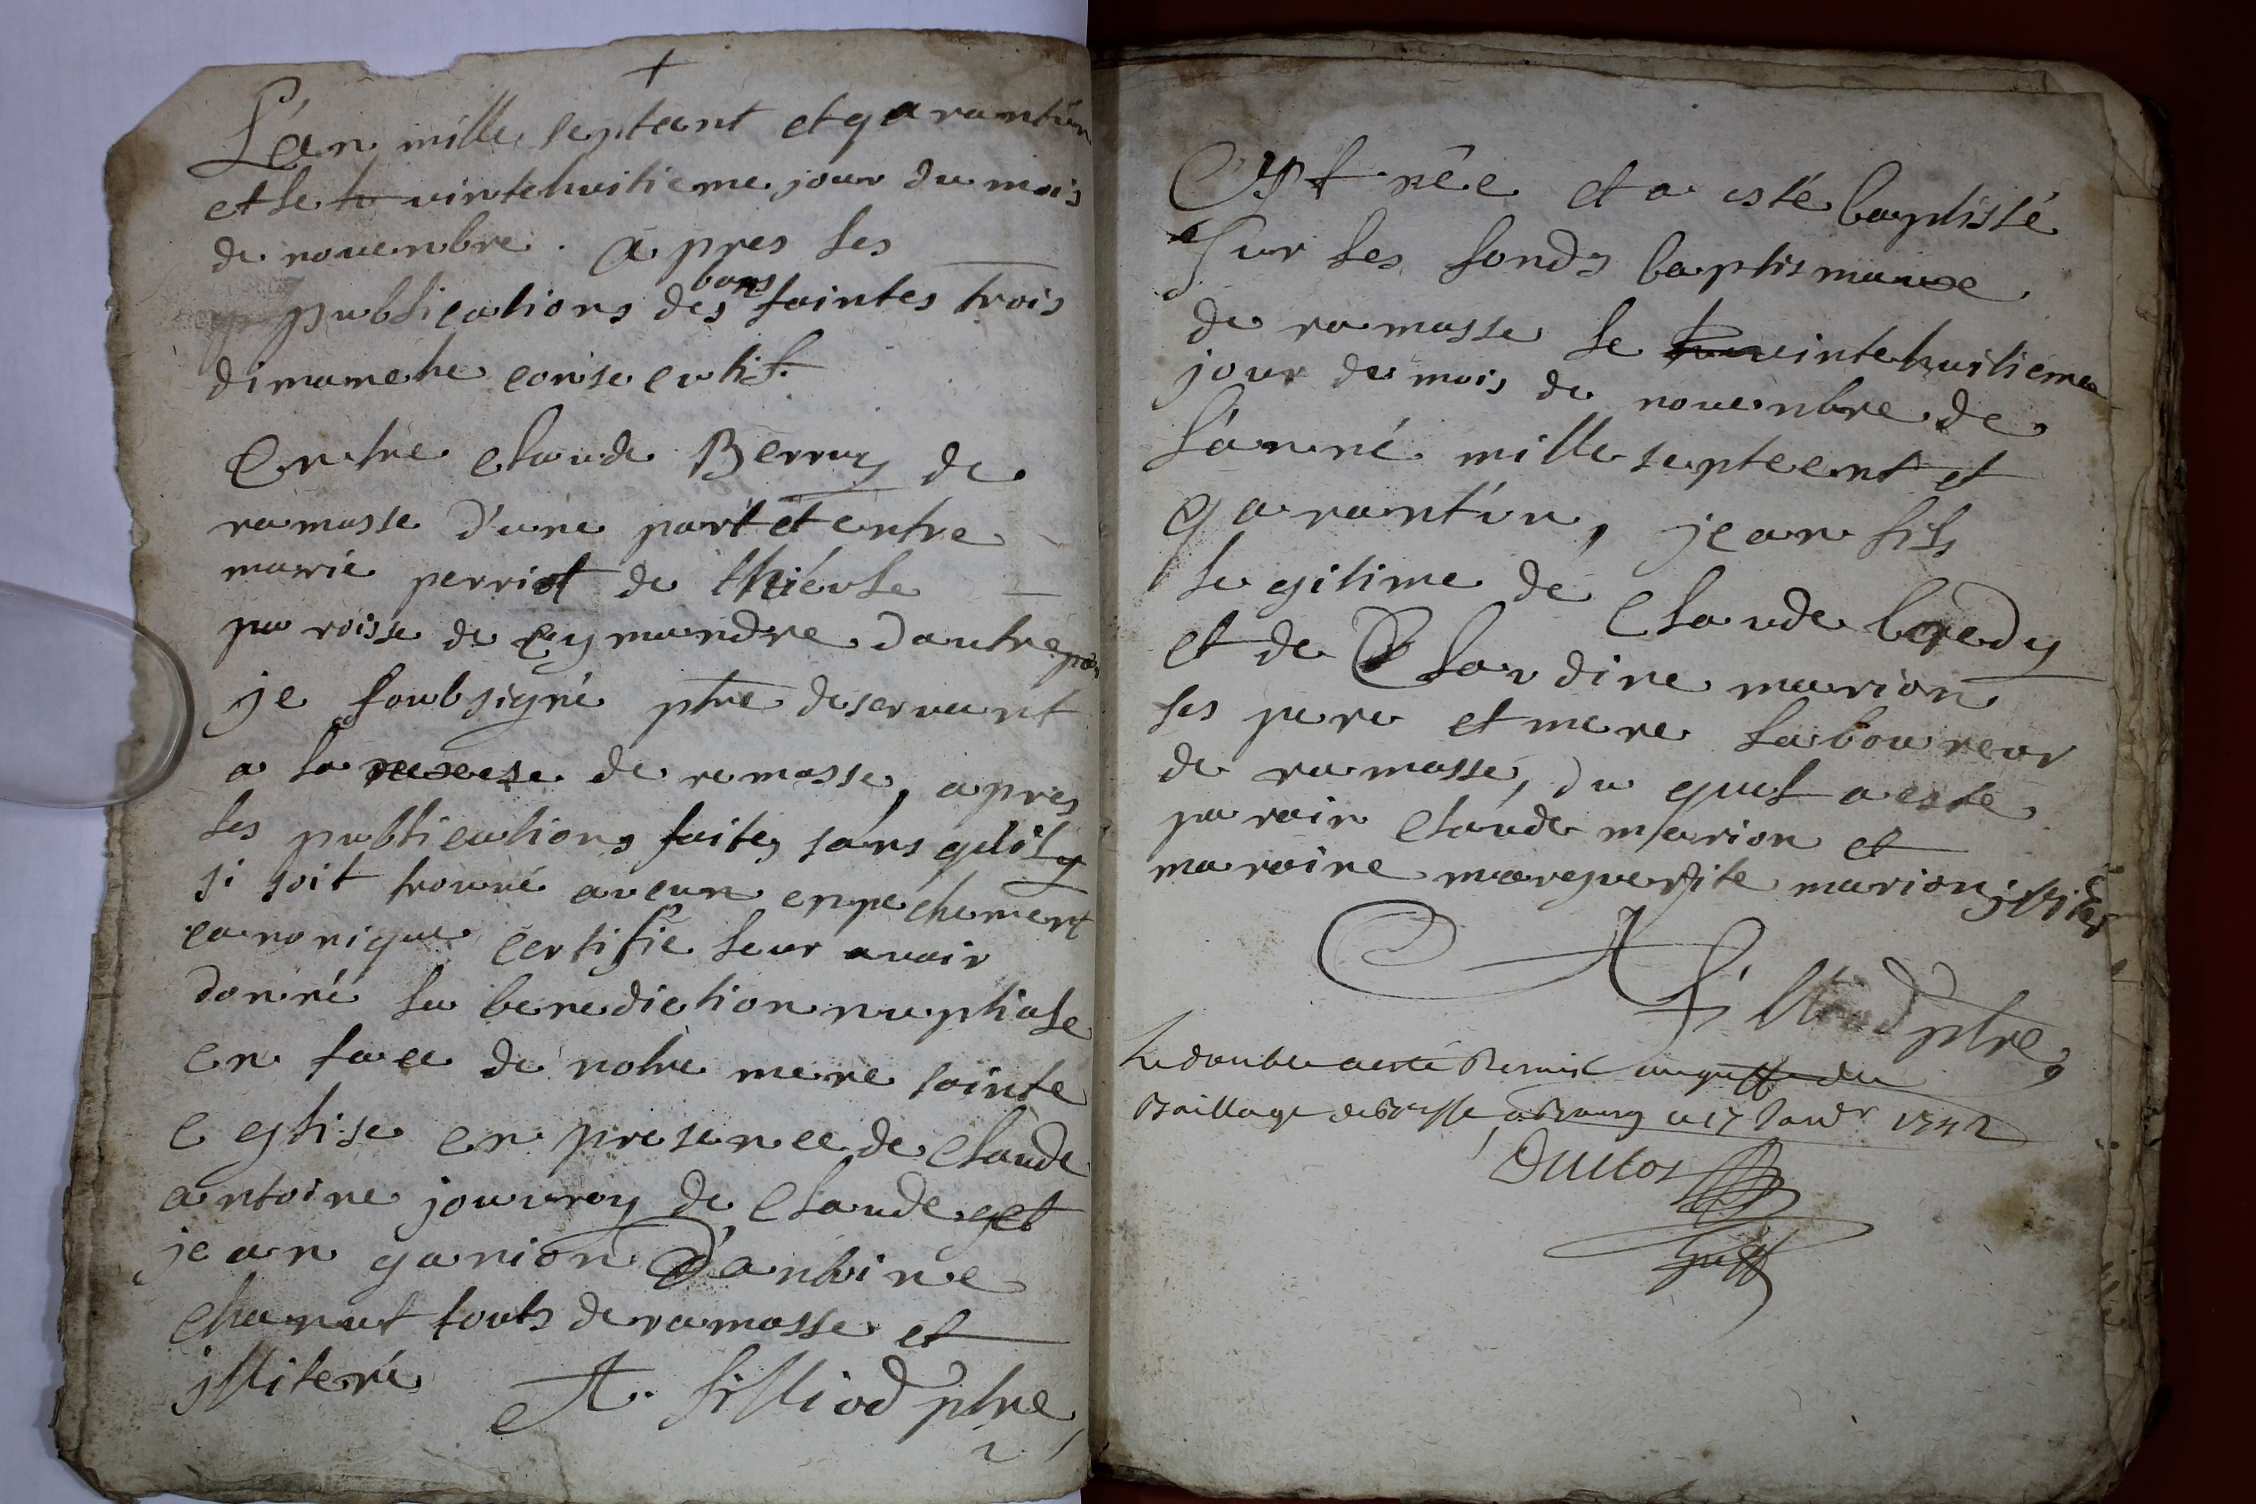 +
L'an mille septcent et garantûn
et le vintehuitieme jour du mois
de nouenbre. a pres les
publications des bans saintes trois
dimamche consecutif.
Entre claude Berruy de
ramasse d'une part et entre
marie perriot de thiéole
paroisse de cymandre dautre par
je soubsigné ptre deseruant
a la de remasse, apres
les publications faites sans quil y
si soit trouué aucun enpechement
canonique certifie leur auoir
donné la benediction nuptiale
en face de notre mere sainte
eglise en presence de claude
antoine jouuroy de claude et
jean ganion d'antoine
chanut touts de ramasse et
jlliteré A. filliod ptre
Est née et a esté baptissé
sur les fonds baptismaux
de ramasse le vintehuitieme
jour de mois de nouenbre de
l'anné mille septcent et
garantûn, jean fils
legitime de claude bredy
et de Claudine marion
ses pere et mere laboureur
de ramasse, du quel a este
parain claude marion et
maraine marguerite marion jlliteré
A filliod ptre,
Le double a esté Remis au greffe du
Baillage de Bresse a Bourg le 17 Janvr 1742
Duclos
greff